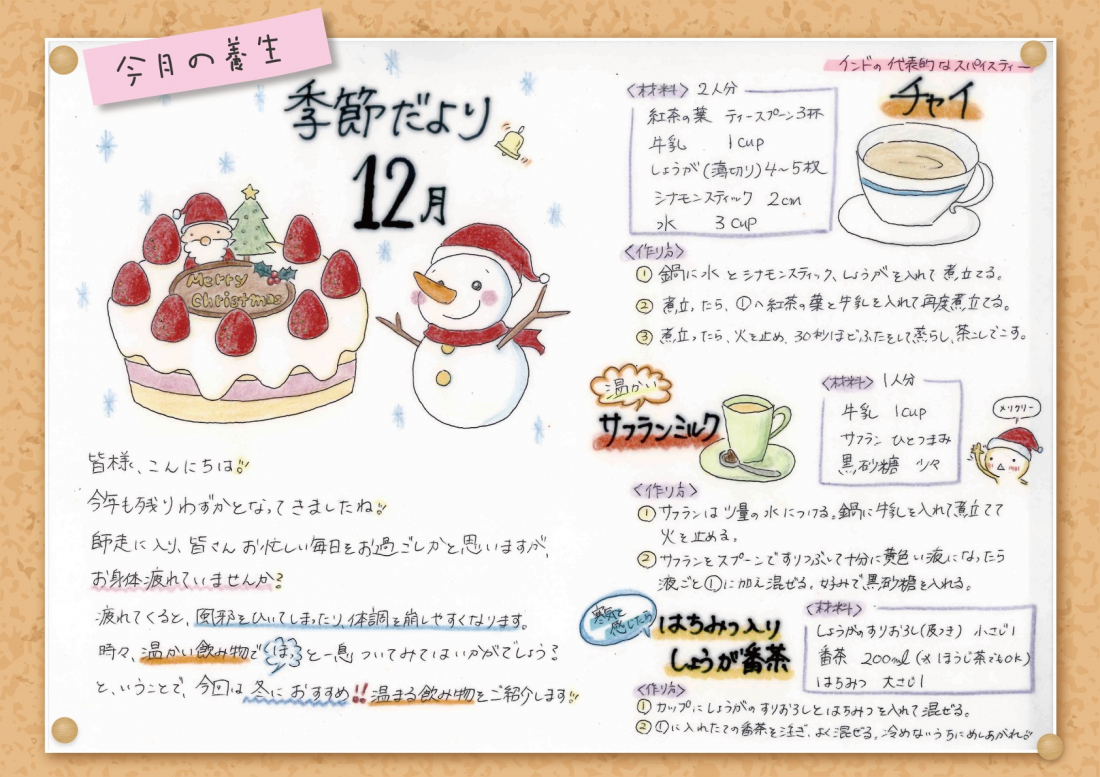 今月の養生
季節だより
12月
Merry
Christmas
皆様、こんにちは!!
今年も残りわずかとなってきましたね!!
師走に入り、皆さんお忙しい毎日をお過ごしかと思いますが、
お身体疲れていませんか?
疲れてくると、風邪をひいてしまったり、体調を崩しやすくなります。
時々、温かい飲み物で ほっ と一息ついてみてはいかがでしょう?
と、いうことで、今回は冬におすすめ!!温まる飲み物をご紹介します!!
インドの代表的なスパイスティー
チャイ
〈材料〉 2人分
紅茶の葉 ティースプーン3杯
牛乳 1cup
しょうが(薄切り)4~5枚
シナモンスティック 2cm
水 3cup
〈作り方〉
① 鍋に水とシナモンスティック、しょうがを入れて煮立てる。
② 煮立ったら、①へ紅茶の葉と牛乳を入れて再度煮立てる。
③ 煮立ったら、火を止め、30秒ほどふたをして蒸らし、茶こしでこす。
温かい
サフランミルク
〈材料〉 1人分
牛乳 1cup
サフラン ひとつまみ
黒砂糖 少々
メリクリー
〈作り方〉
① サフランは少量の水につける。鍋に牛乳を入れて煮立てて
火を止める。
② サフランをスプーンですりつぶして十分に黄色い液になったら
液ごと①に加え混ぜる。好みで黒砂糖を入れる。
寒気を
感じたら
はちみつ入り
しょうが番茶
〈材料〉
しょうがのすりおろし(皮つき) 小さじ1
番茶 200ml(※ほうじ茶でもOK)
はちみつ 大さじ1
〈作り方〉
① カップにしょうがのすりおろしとはちみつを入れて混ぜる。
② ①に入れたての番茶を注ぎ、よく混ぜる。冷めないうちにめしあがれ!!